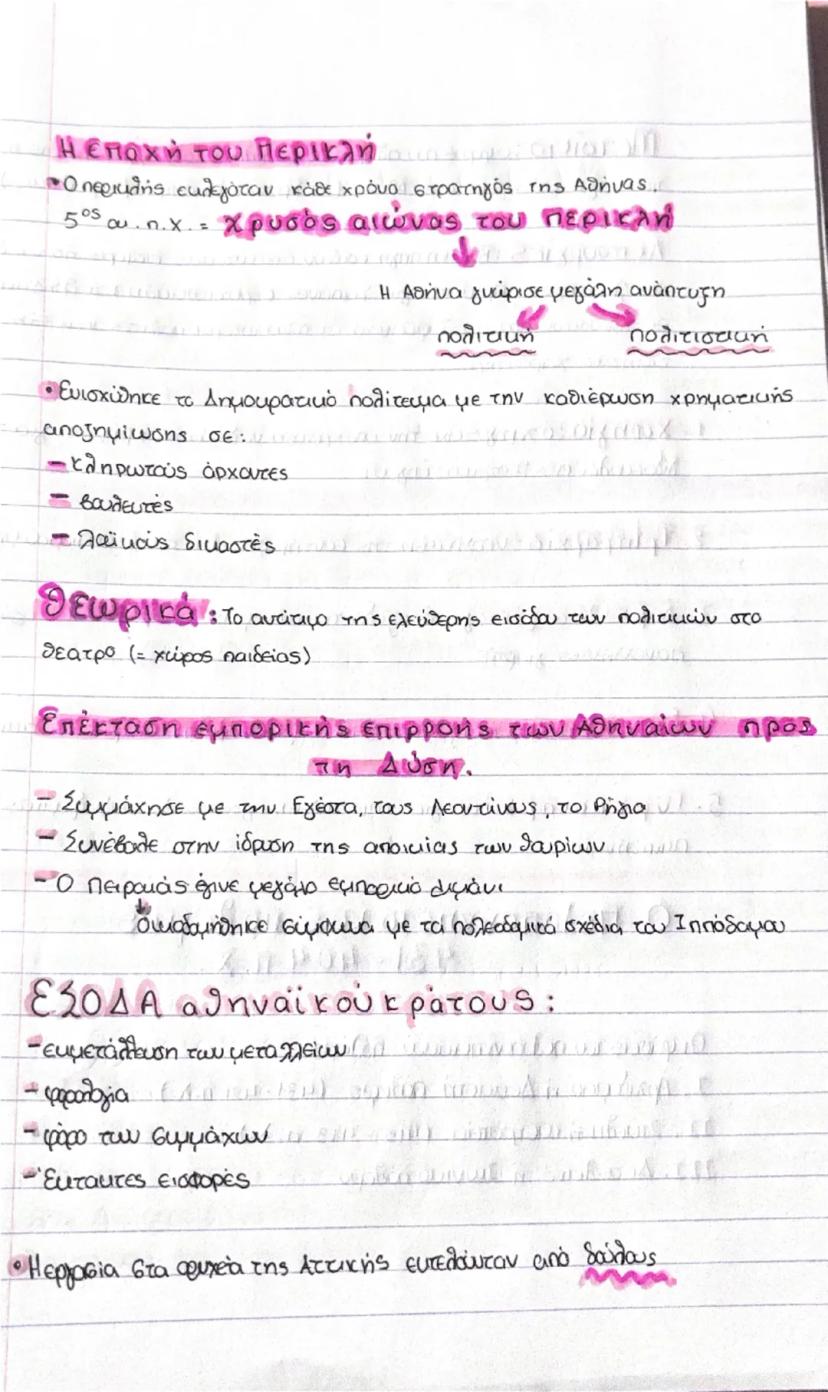 Η εποχή του Περικλή
• Ο περικλής εκλεγόταν κάθε χρόνο στρατηγός της Αθήνας.
5ος αι. π.Χ. = χρυσός αιώνας του Περικλή
Η Αθήνα γνώρισε μεγάλη ανάπτυξη
πολιτική πολιτιστική
• Ενισχύθηκε το Δημοκρατικό πολίτευμα με την καθιέρωση χρηματικής
αποζημίωσης σε:
- κληρωτούς άρχοντες
- βουλευτές
- λαϊκούς δικαστές
θεωρικά: Το αντίτιμο της ελεύθερης εισόδου των πολιτικών στο
θέατρο (= χώρος παιδείας)
Επέκταση εμπορικής επιρροής των Αθηναίων προς
τη Δύση.
- Συμμάχησε με την Εγέστα, τους Λεοντίνους, το Ρήγιο
- Συνέβαλε στην ίδρυση της αποικίας των θουρίων
- Ο Πειραιάς έγινε μεγάλο εμπορικό λιμάνι
Οικοδομήθηκε σύμφωνα με τα πολεοδομικά σχέδια του Ιππόδαμου
ΕΣΟΔΑ αθηναϊκού κράτους:
- εκμετάλλευση των μεταλλείων
- φορολογία
- φόρο των συμμάχων
- Έκτακτες εισφορές
• Η εργασία στα ορυχεία της Αττικής εκτελούνταν από δούλους